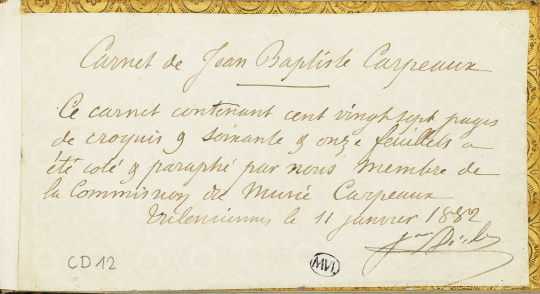 Carnet de Jean Baptiste Carpeaux
Ce carnet contenant cent vingt sept pages
de croquis & soixante & onze feuillets a
été coté & paraphé par nous Membre de
la Commission du Musée Carpeaux
Valenciennes le 11 janvier 1882
CD12
MVL